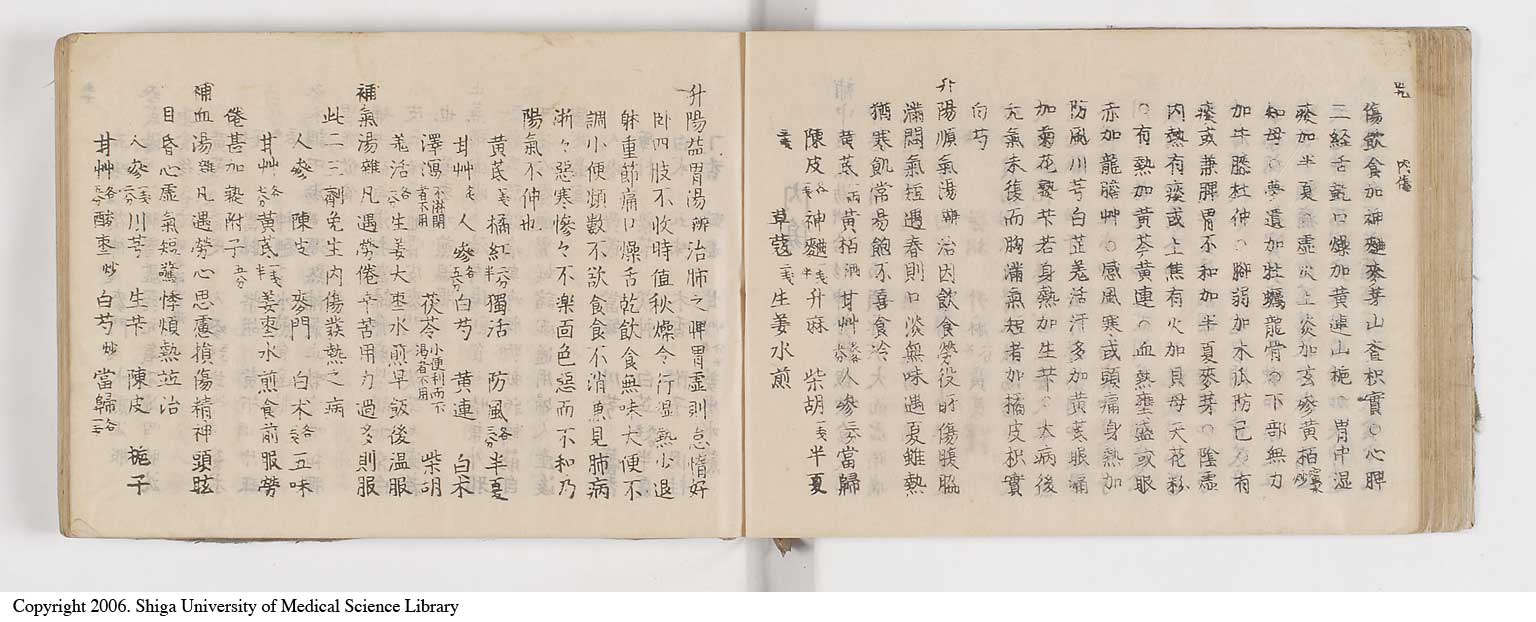 內傷
傷飲食加神麯麥芽山査枳實○心脾
二經舌乾口燥加黃連山梔○胃中湿
痰加半夏○虛火上炎加玄參黃栢蜜炒
知母○夢遺加牡蠣龍骨○下部無力
加牛膝杜仲○脚弱加木瓜防己○有
痰或兼脾胃不和加半夏麥芽○陰虛
內熱有痰或上焦有火加貝母天花粉
○有熱加黃芩黃連○血熱壅盛或眼
赤加龍膽艸○感風寒或頭痛身熱加
防風川芎白芷羗活汗多加黃芪眼痛
加菊花熟芐若身熱加生芐○大病後
元氣未復而胸滿氣短者加橘皮枳實
白芍
升陽順氣湯 治因飲食勞役所傷腹脇
滿悶氣短遇春則口淡無味遇夏雖熱
猶寒飢常易飽不喜食冷
黃芪 黃栢 甘艸 人參 當歸
陳皮 神麯 升麻 柴胡 半夏
草蔻 生姜水煎
升陽益胃湯 治肺之脾胃虛則怠惰好
卧四肢不收時值秋燥令行湿熱少退
躰重節痛口燥舌乾飲食無味大便不
調小便頻數不欲食食不消兼見肺病
淅々惡寒慘々不楽面色惡而不和乃
陽氣不伸也
黃芪 橘紅 獨活 防風 半夏
甘艸 人參 白芍 黃連 白朮
澤瀉不淋閉者不用 茯苓小便利而不渴者不用 柴胡
羗活 生姜大枣水煎早飯後温服
補氣湯 凡遇勞倦辛苦用力過多則服
此二三劑免生內傷發熱之病
人參 陳皮 麥門 白朮 五味
甘艸 黃芪 姜枣水煎食前服勞
倦甚加熟附子
補血湯 凡遇勞心思慮損傷精神頭眩
目昏心虛氣短驚悸煩熱並治
人參 川芎 生芐 陳皮 梔子
甘艸 酸枣炒 白芍炒 當歸